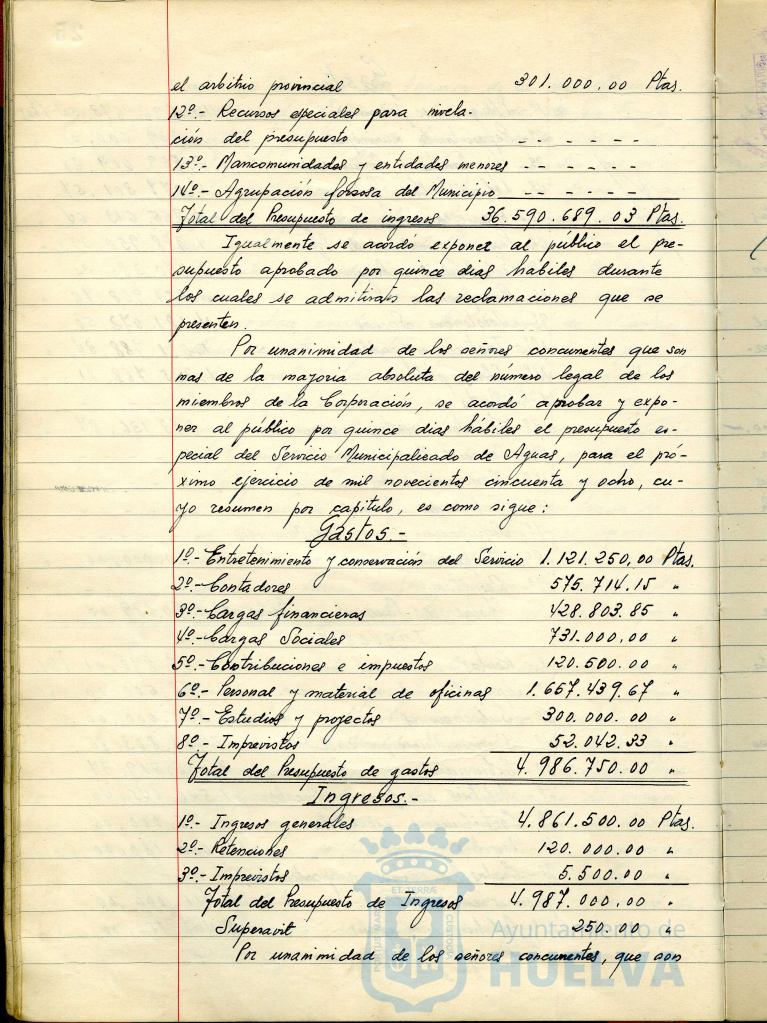 el arbitrio provincial 301.000,00 Ptas.
12º.- Recursos especiales para nivela-
ción del presupuesto - - - - - -
13º.- Mancomunidades y entidades menores - - - - - -
14º.- Agrupación forzosa del Municipio - - - - - -
Total del Presupuesto de ingresos 36.590.689.03 Ptas.
Igualmente se acordó exponer al público el pre-
supuesto aprobado por quince dias habiles durante
los cuales se admitiran las reclamaciones que se
presenten.
Por unanimidad de los señores concurrentes que son
mas de la mayoria absoluta del número legal de los
miembros de la Corporación, se acordó aprobar y expo-
ner al público por quince dias hábiles el presupuesto es-
pecial del Servicio Municipalizado de Aguas, para el pró-
ximo ejercicio de mil novecientos cincuenta y ocho, cu-
yo resumen por capitulo, es como sigue:
Gastos.-
1º.- Entretenimiento y conservación del Servicio 1.121.250,00 Ptas.
2º.- Contadores 575.714.15 "
3º.- Cargas financieras 428.803.85 "
4º.- Cargas Sociales 731.000,00 "
5º.- Contribuciones e impuestos 120.500.00 "
6º.- Personal y material de oficinas 1.657.439,67 "
7º.- Estudios y projectos 300.000.00 "
8º.- Imprevistos 52.042.33 "
Total del Presupuesto de gastos 4.986.750.00 "
Ingresos.-
1º.- Ingresos generales 4.861.500.00 Ptas.
2º.- Retenciones 120.000.00 "
3º.- Imprevistos 5.500.00 "
Total del Presupuesto de Ingresos 4.987.000,00 "
Superavit 250.00 "
Por unanimidad de los señores concurrentes, que son
Ayuntamiento de
HUELVA